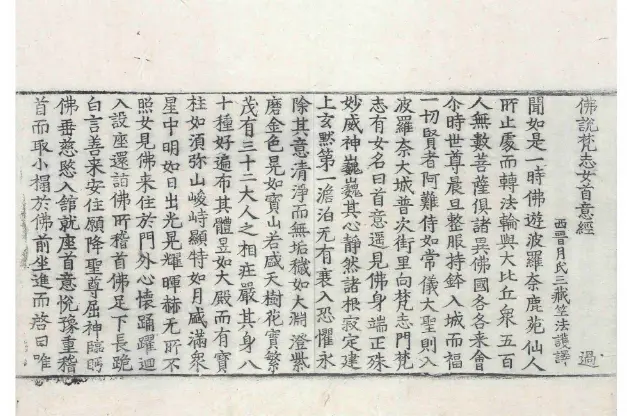 佛說梵志女首意經　過
西晉月氏三藏竺法護譯
聞如是一時佛遊波羅奈鹿苑仙人
所止處而轉法輪與大比丘衆五百
人無數菩薩俱諸異佛國各各來會
尒時世尊晨旦整服持鉢入城而福
一切賢者阿難侍如常儀大聖則入
波羅奈大城普次街里向梵志門梵
志有女名曰首意遥見佛身端正殊
妙威神巍巍其心静然諸根寂定建
上玄黙第一澹泊无有衰入恐懼永
除其意清淨而無垢穢如大淵澄紫
磨金色晃如寶山若盛天樹花實繁
茂有三十二大人之相莊嚴其身八
十種好遍布其體昱如大殿而有寶
柱如須弥山峻峙顯特如月盛滿衆
星中明如日出光晃耀暉赫无所不
照女見佛來住於門外心懷踊躍迴
入設座還詣佛所稽首佛足下長跪
白言善來安住願降聖尊屈神臨眄
佛垂慈愍入舘就座首意悅豫重稽
首而取小榻於佛前坐進而啓曰唯